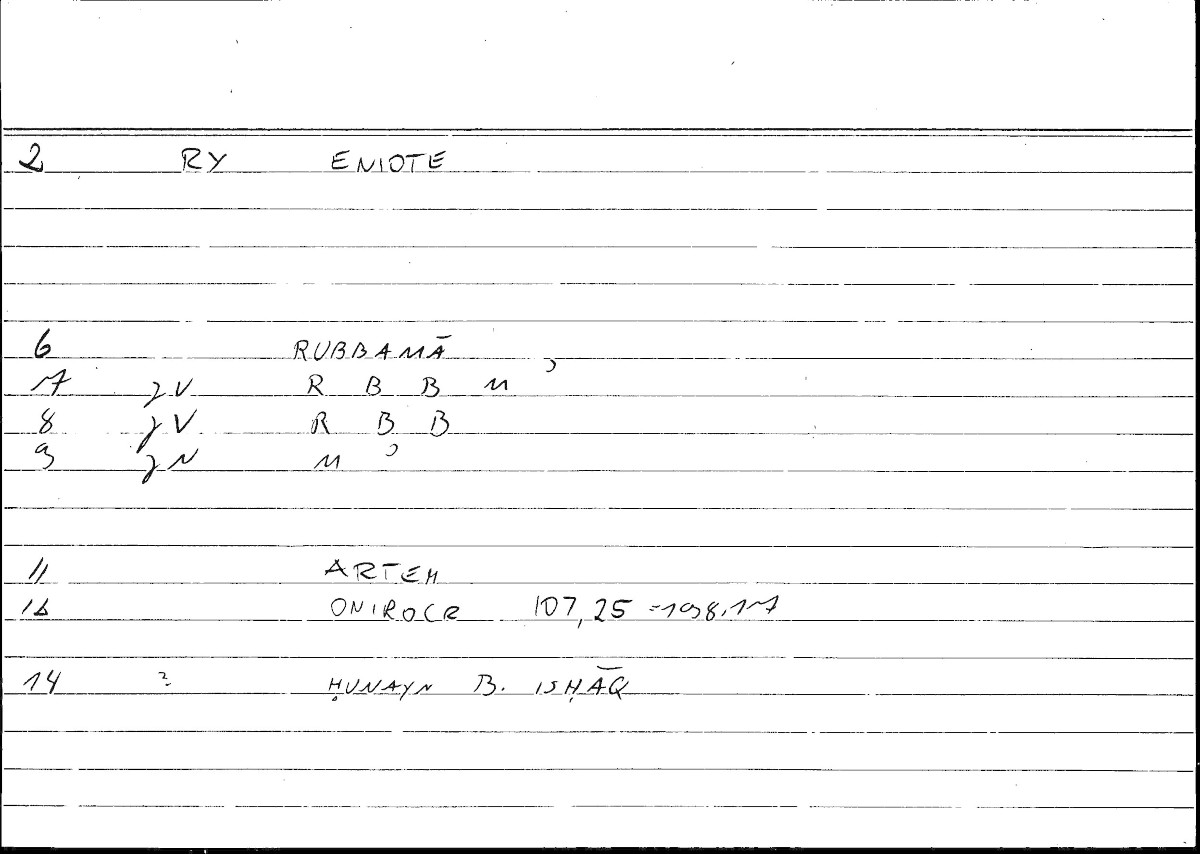 2 RY ENIOTE
6 RUBBAMĀ
17 zV R B B M ʾ
8 zV R B B
9 zN M ʾ
11 ARTEM
12 ONIROCR 107,25 = 198.17
14 2 ḤUNAYN B. ISḤĀQ